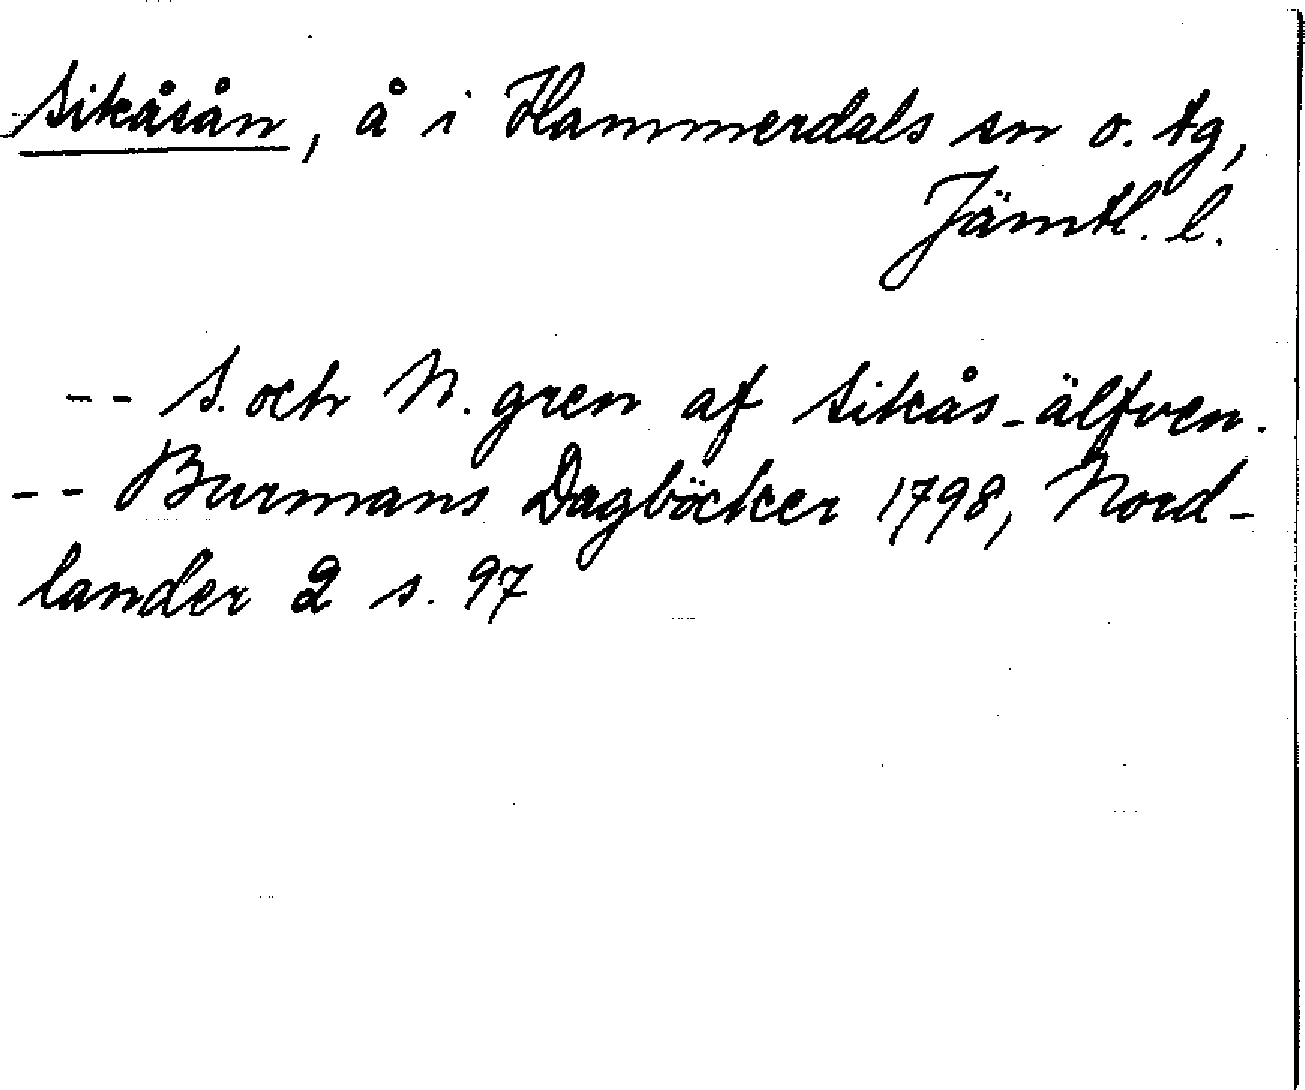 Sikåsån, å i Hammerdals sn o. tg,
Jämtl. l.
-- S. och N. gren af Sikås-älfven.
-- Burmans Dagböcker 1798, Nord-
lander 2 s. 97